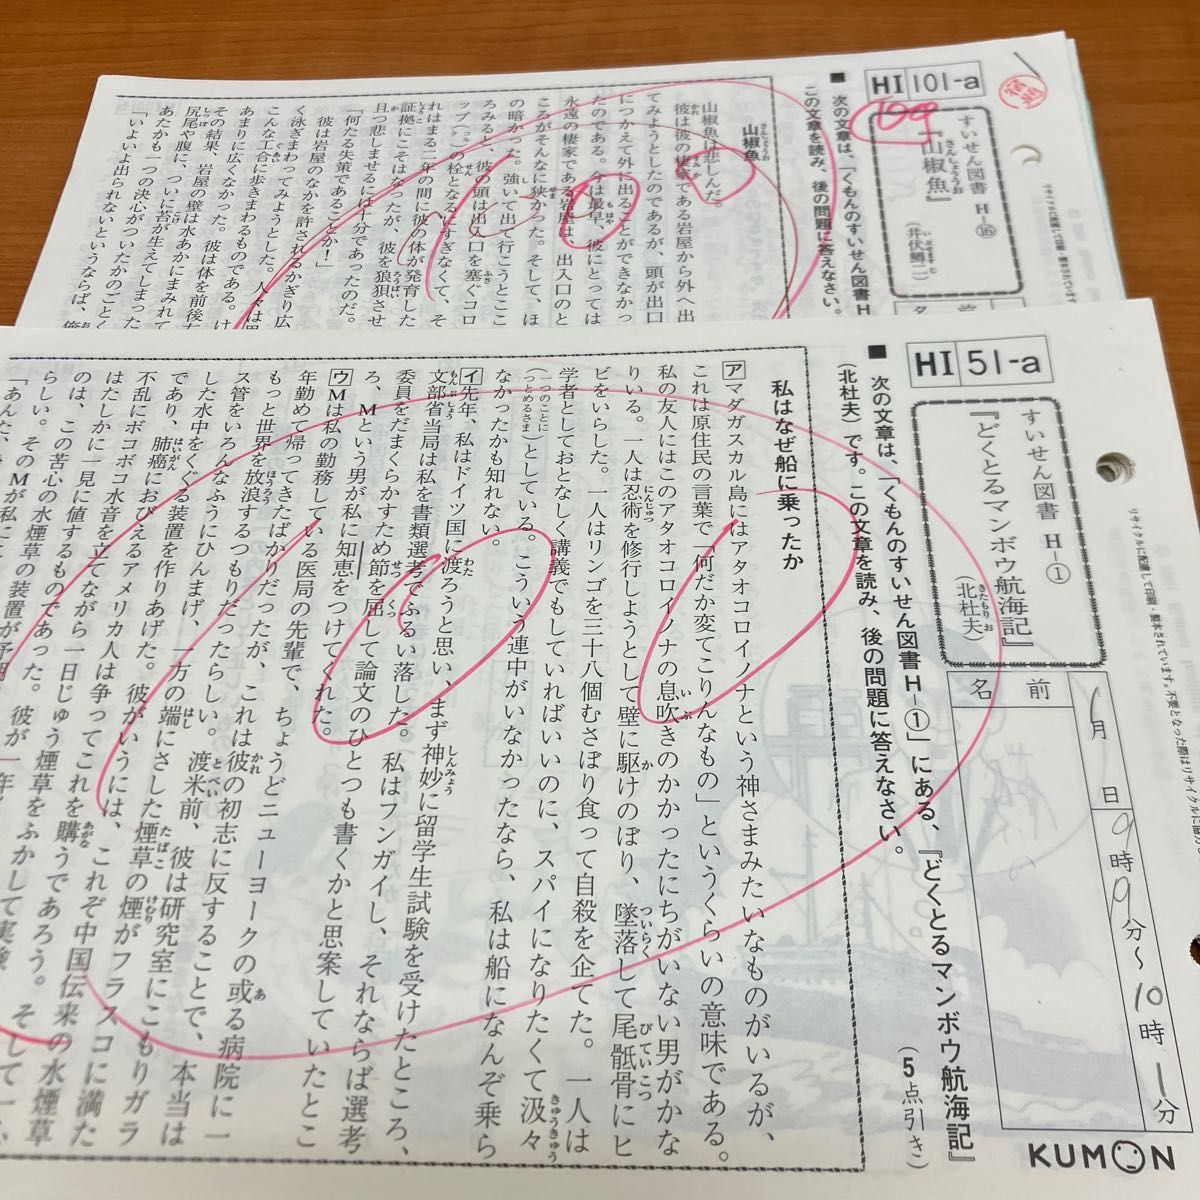 HI 101-a
100
宿題
すいせん図書 H-⑯
『山椒魚』
さんしょううお
(井伏鱒二)
いぶせますじ
■ 次の文章は、「くもんのすいせん図書H
この文章を読み、後の問題に答えなさい。
山椒魚
さんしょううお
山椒魚は悲しんだ。
彼は彼の棲家である岩屋から外へ出
てみようとしたのであるが、頭が出口
につかえて外に出ることができなかっ
たのである。今は最早、彼にとっては
永遠の棲家である岩屋は、出入口のと
ころがそんなに狭かった。そして、ほ
の暗かった。強いて出て行こうとここ
ろみると、彼の頭は出入口を塞ぐコロ
ップ(コルク)の栓となるにすぎなくて、そ
れはまる二年の間に彼の体が発育した
証拠にこそはなったが、彼を狼狽させ
且つ悲しませるには十分であったのだ。
「何たる失策であることか!」
彼は岩屋のなかを許されるかぎり広
く泳ぎまわってみようとした。人々は思
こんな工合に歩きまわるものである。け
あまりに広くなかった。彼は体を前後左
その結果、岩屋の壁は水あかにまみれて
尻尾や腹に、ついに苔が生えてしまった
あたかも一つの決心がついたかのごとく
「いよいよ出られないというならば、俺
HI 51-a
すいせん図書 H-①
『どくとるマンボウ航海記』
(北杜夫)
きたもりお
名前
1月1日
9時9分〜10時1分
KUMON
■ 次の文章は、「くもんのすいせん図書H-①」にある、『どくとるマンボウ航海記』
(北杜夫)です。この文章を読み、後の問題に答えなさい。
(5点引き)
私はなぜ船に乗ったか
ア マダガスカル島にはアタオコロイノナという神さまみたいなものがいるが、
これは原住民の言葉で「何だか変てこりんなもの」というくらいの意味である。
私の友人にはこのアタオコロイノナの息吹きのかかったにちがいない男がかな
りいる。一人は忍術を修行しようとして壁に駆けのぼり、墜落して尾骶骨にヒ
ビをいらした。一人はリンゴを三十八個むさぼり食って自殺を企てた。一人は
学者としておとなしく講義でもしていればいいのに、スパイになりたくて汲々
(一つのことにつとめるさま)としている。こういう連中がいなかったなら、私は船になんぞ乗ら
なかったかも知れない。
イ 先年、私はドイツ国に渡ろうと思い、まず神妙に留学生試験を受けたところ、
文部省当局は私を書類選考でふるい落した。私はフンガイし、それならば選考
委員をだまくらかすため節を屈して論文のひとつも書くかと思案していたとこ
ろ、Mという男が私に知恵をつけてくれた。
ウ Mは私の勤務している医局の先輩で、ちょうどニューヨークの或る病院に一
年勤めて帰ってきたばかりだったが、これは彼の初志に反することで、本当は
もっと世界を放浪するつもりだったらしい。渡米前、彼は研究室にこもりガラ
ス管をいろんなふうにひんまげ、一方の端にさした煙草の煙がフラスコに満た
した水中をくぐる装置を作りあげた。彼がいうには、これぞ中国伝来の水煙草
であり、肺癌におびえるアメリカ人は争ってこれを購うであろう。そして一
不乱にボコボコ水音を立てながら一日じゅう煙草をふかして実験
はたしかに一見に値するものであった。彼が一年
のは、この苦心の水煙草の装置が予期
らしい。そのMが私に
「あんた、